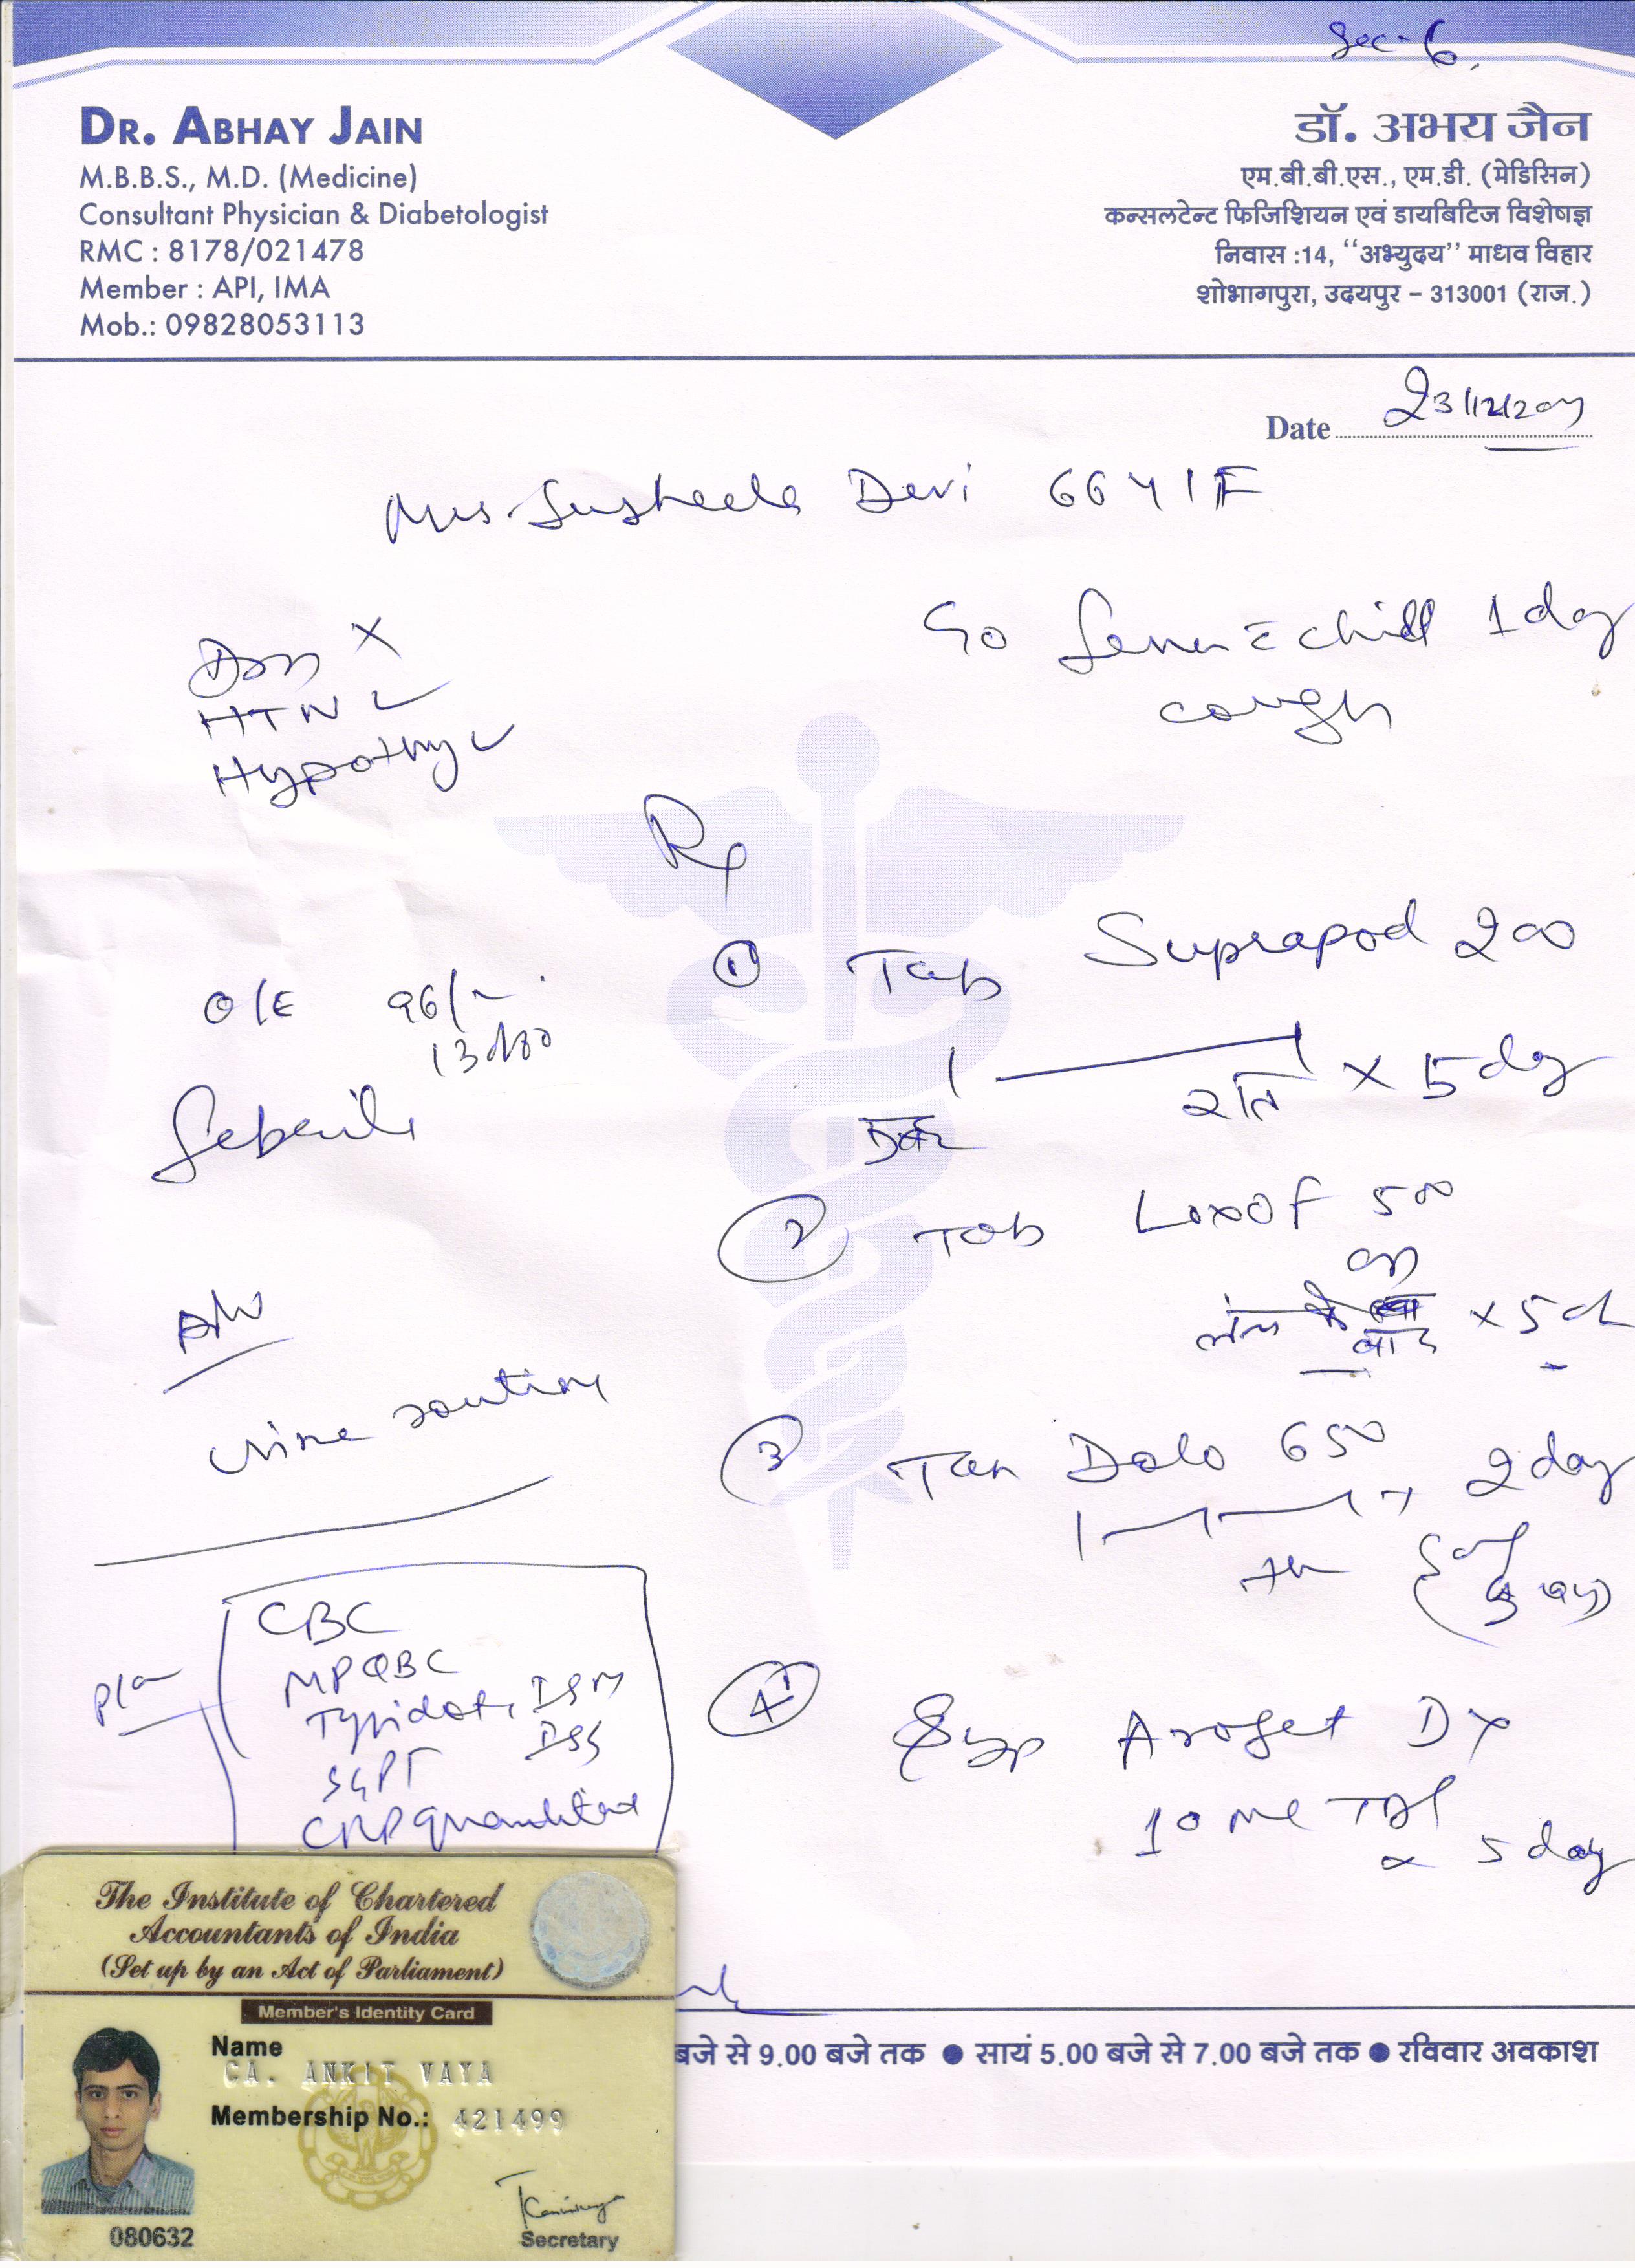 Sec-6
DR. ABHAY JAIN
M.B.B.S., M.D. (Medicine)
Consultant Physician & Diabetologist
RMC : 8178/021478
Member : API, IMA
Mob.: 09828053113
डॉ. अभय जैन
एम.बी.बी.एस., एम.डी. (मेडिसिन)
कन्सलटेन्ट फिजिशियन एवं डायबिटिज विशेषज्ञ
निवास :14, ‘‘अभ्युदय’’ माधव विहार
शोभागपुरा, उदयपुर – 313001 (राज.)
Date 23/12/2017
Mrs Susheela Devi 66Y/F
C/o fever c chill 1 day
cough
DM X
HTN ✓
Hypothy ✓
Rx
① Tab Suprapod 200
रात्रि × 5 day
O/E 96/
130/80
febrile
② Tab Loxof 500
OD
बाद × 5 d
Adv
urine routine
③ Tab Dolo 650 2 day
④ Syp Arofet DX
10 ml TDS
× 5 day
Plan
CBC
MPQBC
Typhidot IgM
IgG
SGPT
CRP quantitative
The Institute of Chartered
Accountants of India
(Set up by an Act of Parliament)
Member's Identity Card
Name
CA. ANKIT VAYA
Membership No.: 421499
080632
Secretary
बजे से 9.00 बजे तक ● सायं 5.00 बजे से 7.00 बजे तक ● रविवार अवकाश